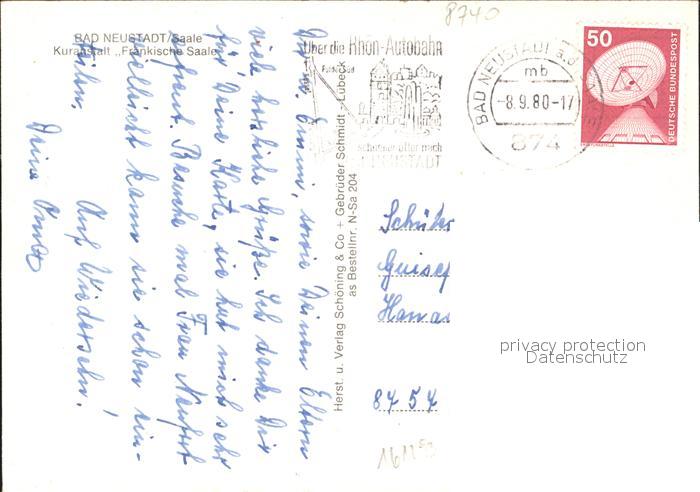 8740
BAD NEUSTADT/Saale
Kuranstalt „Fränkische Saale"
Über die Rhön-Autobahn
schneller öfter nach
NEUSTADT
BAD NEUSTADT a.d.
mb
-8.9.80-17
874
50
DEUTSCHE BUNDESPOST
Herst. u. Verlag Schöning & Co + Gebrüder Schmidt - Lübeck
as Bestellnr. N-Sa 204
sowie Deinen Eltern
viele herzliche Grüße. Ich danke Dir
für Deine Karte, sie hat mich sehr
gefreut. Besuche mal Frau
vielleicht kann sie schon ein-
Auf Wiedersehn!
Deine
Schüler
8454
privacy protection
Datenschutz